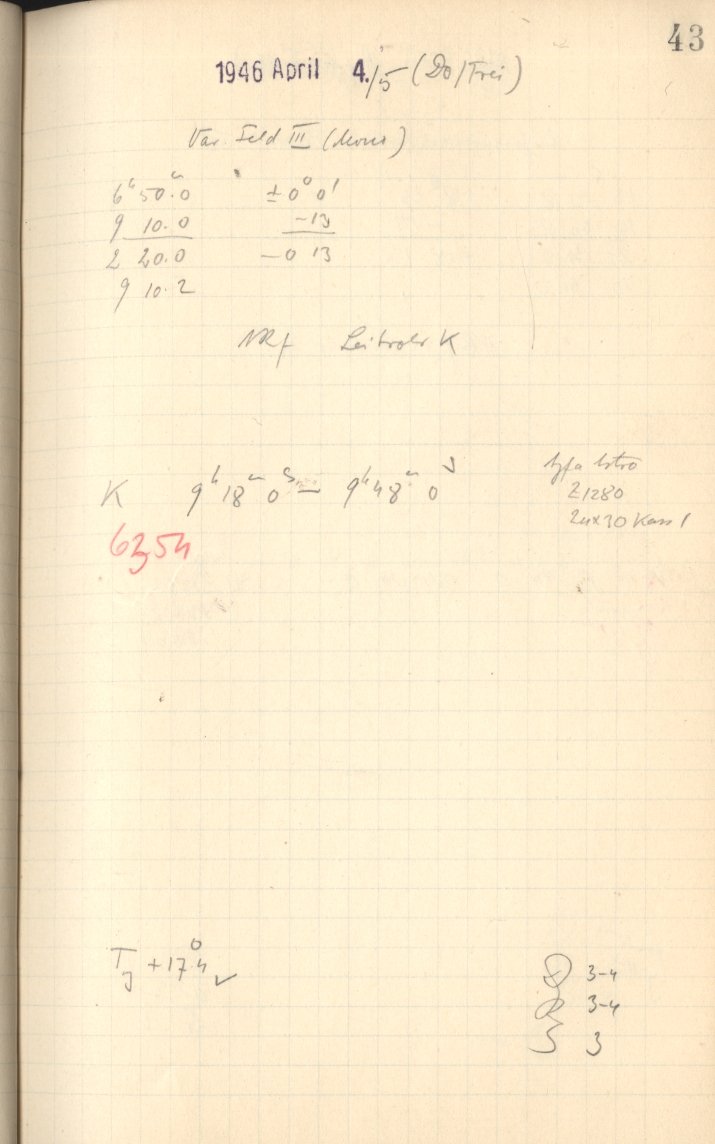 43
1946 April 4./5 (Do/Frei)
Var. Feld III (Monoc)
6ʰ 50ᵐ.0 ±0° 0'
9 10.0 -13
2 20.0 -0 13
9 10.2
Leitrohr K
K 9ʰ 18ᵐ 0ˢ — 9ʰ 48ᵐ 0ˢ
Agfa Astro
Z1280
24x30 Kass 1
6354
T +17°.4 ✓
3-4
R 3-4
S 3